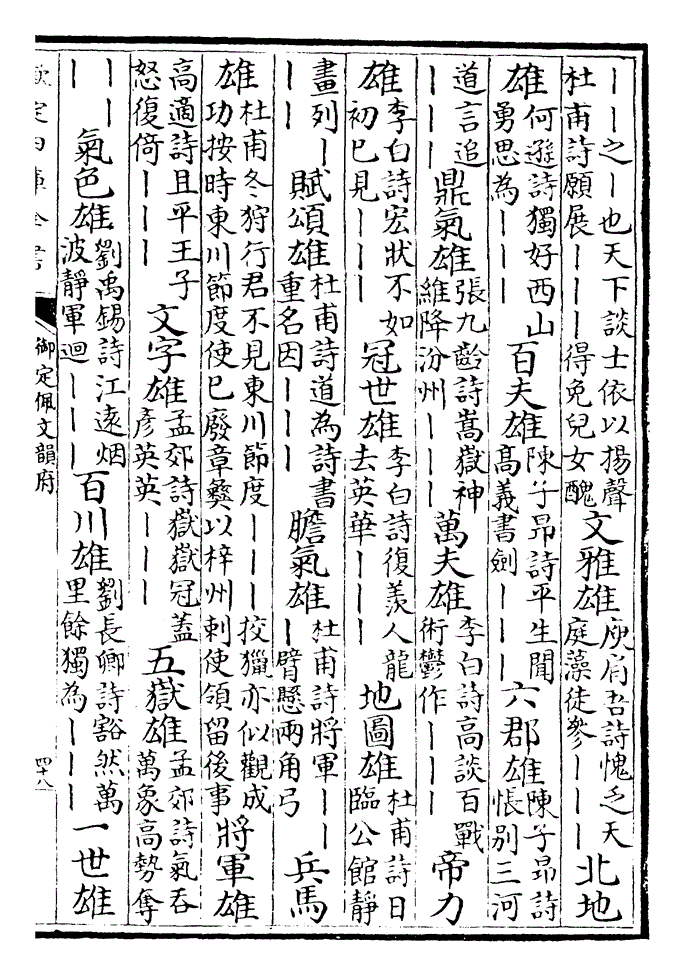 丨丨之丨也天下談士依以揚聲
杜甫詩願展丨丨丨得免兒女醜
文雅雄
庾肩吾詩愧乏天
庭藻徒參丨丨丨
北地
雄
何遜詩獨好西山
勇思為丨丨丨
百夫雄
陳子昂詩平生聞
高義書劍丨丨丨
六郡雄
陳子昂詩
悵别三河
道言追
丨丨丨
鼎氣雄
張九齡詩嵩嶽神
維降汾州丨丨丨
萬夫雄
李白詩高談百戰
術鬱作丨丨丨
帝力
雄
李白詩宏狀不如
初已見丨丨丨
冠世雄
李白詩復羨人龍
去英華丨丨丨
地圖雄
杜甫詩日
臨公館靜
畫列丨
丨丨
賦頌雄
杜甫詩道為詩書
重名因丨丨丨
膽氣雄
杜甫詩將軍丨丨
丨臂懸兩角弓
兵馬
雄
杜甫冬狩行君不見東川節度丨丨丨挍獵亦似觀成
功按時東川節度使已廢章彝以梓州刺使領留後事
將軍雄
高適詩且平王子
怒復倚丨丨丨
文字雄
孟郊詩嶽嶽冠蓋
彦英英丨丨丨
五嶽雄
孟郊詩氣吞
萬象高勢奪
丨丨
丨
氣色雄
劉禹錫詩江遠烟
波靜軍迴丨丨丨
百川雄
劉長卿詩豁然萬
里餘獨為丨丨丨
一世雄
欽定四庫全書
御定佩文韻府
四十八